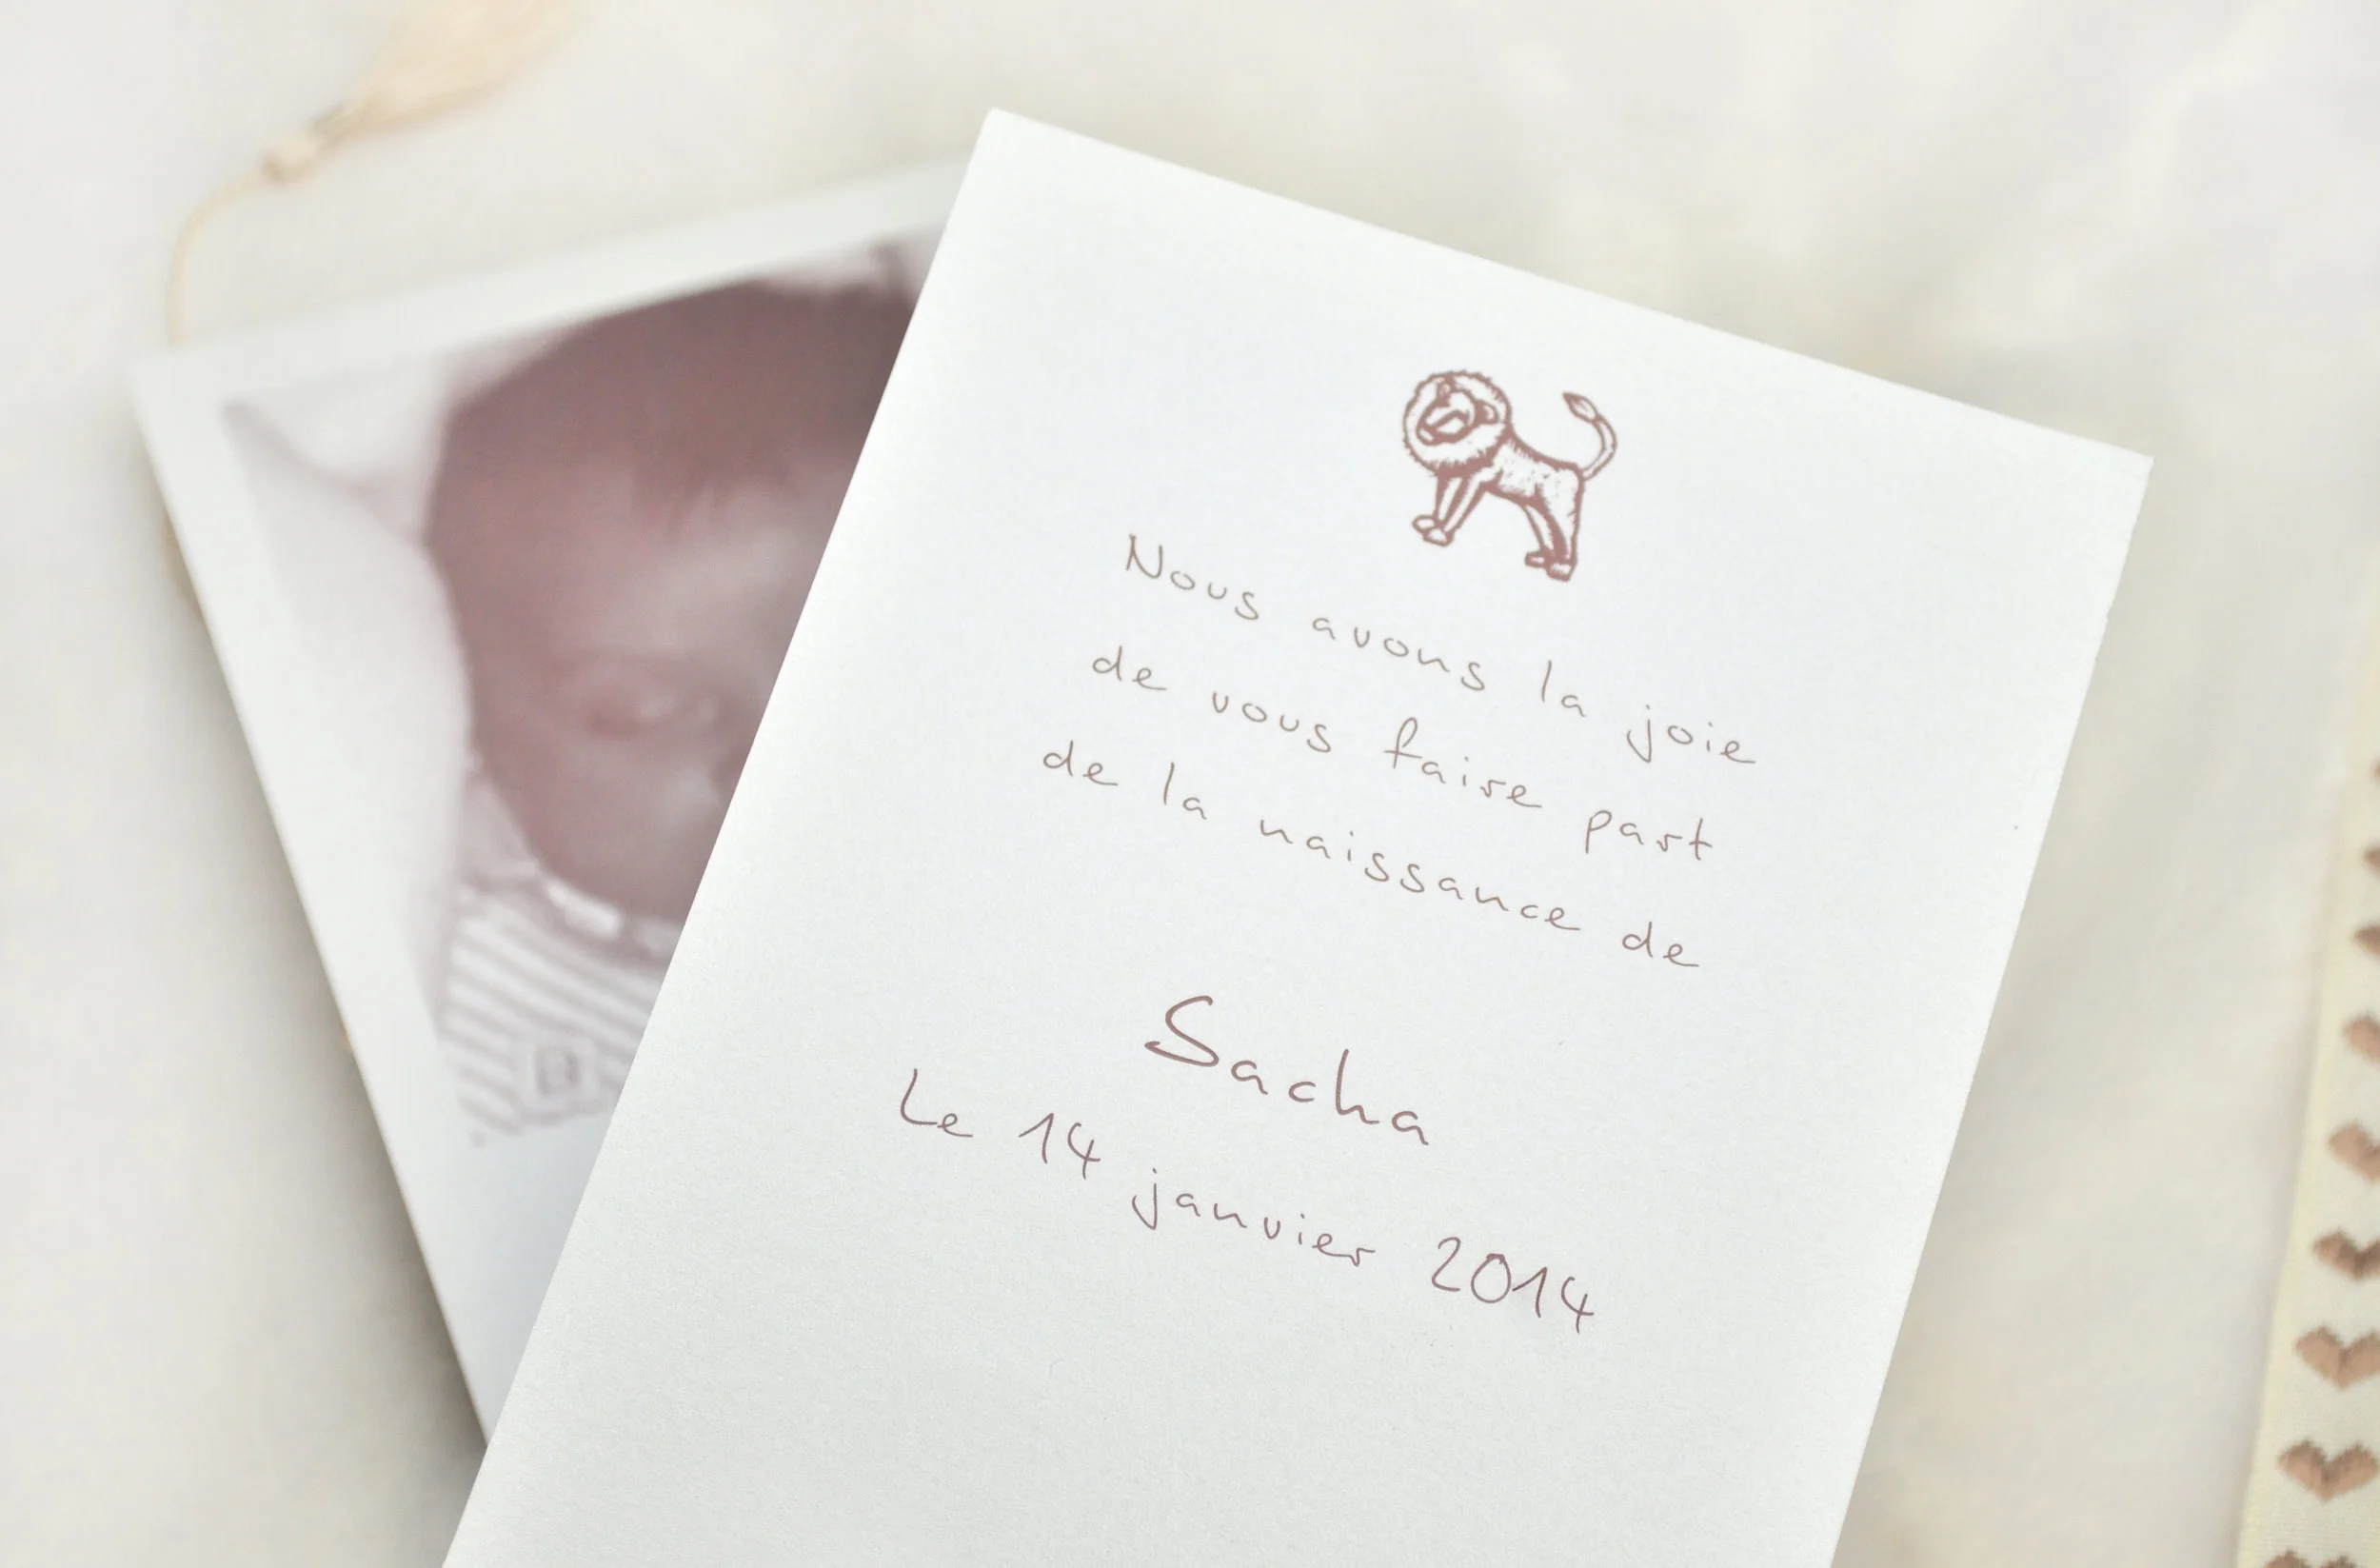 Nous avons la joie
de vous faire part
de la naissance de
Sacha
Le 14 janvier 2014